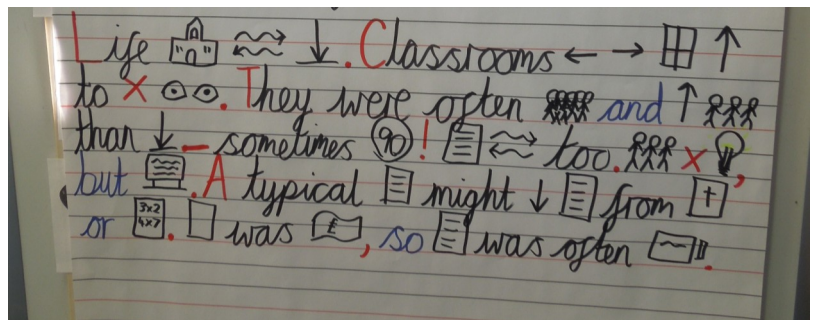 Life . Classrooms ← → ↑
to × . They were often and ↑
than ↓ - sometimes 90 ! too. × ,
but . A typical might ↓ from +
or 3x2 4x7 . was £ , so was often .